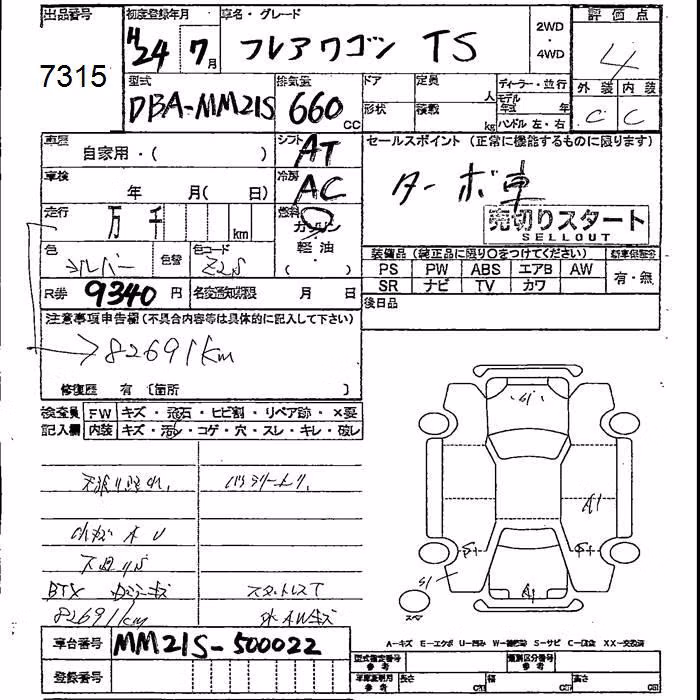 出品番号 初度登録年月 車名・グレード 2WD ・ 4WD 評価点
7315 H24 7月 フレアワゴン TS 4
型式 排気量 ドア 定員 人 ディーラー・並行 外装 内装
DBA-MM21S 660cc 形状 積載 kg モデル年式 年 ハンドル 左・右 C C
車歴 シフト セールスポイント (正常に機能するものに限ります)
自家用・( ) AT
車検 冷房 ターボ車
年 月( 日) AC
走行 万 千 km 燃料 ガソリン 売切りスタート
SELLOUT
色 シルバー 色替 色コード Z2S 軽油 ( ・ )
装備品 (純正品に限り○をつけてください) 新車保証書
PS PW ABS エアB AW 有・無
R券 9340円 名変通知期限 月 日 SR ナビ TV カワ
注意事項申告欄(不具合内容等は具体的に記入して下さい) 後日品
→82691km
修復歴 有 〔箇所 〕
検査員 FW キズ・飛石・ヒビ割・リペア跡・×要
記入欄 内装 キズ・汚レ・コゲ・穴・スレ・キレ・破レ
S1
A1
S1
A1
スペア
スタットレスT
82691km
A-キズ E-エクボ U-凹み W-補修跡 S-サビ C-腐食 XX-交換済
車台番号 MM21S-500022
型式指定番号 参考 類別区分番号 参考
登録番号 車庫証明 参考 長さ CM 幅 CM 高さ CM